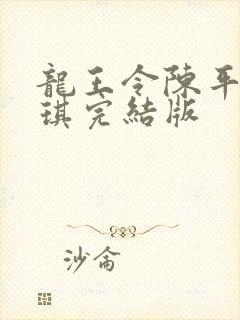 龍王令陳平
琪完結版
沙侖